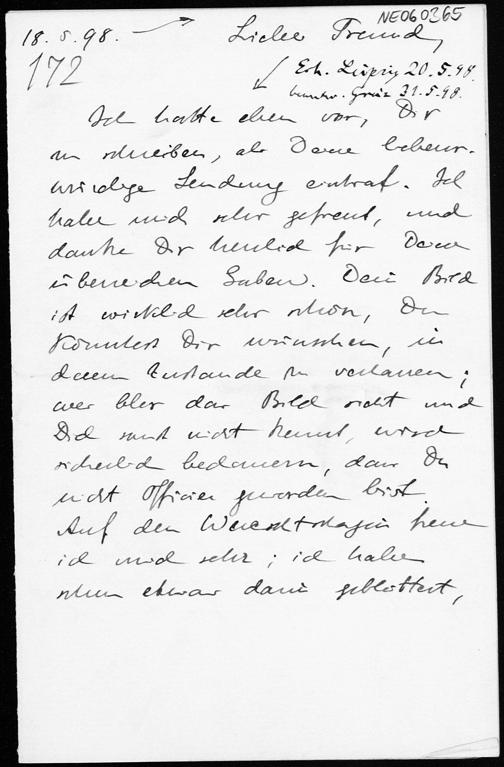 NE060365
18.5.98.
Lieber Freund,
172
Erh. Leipzig 20.5.98.
beantw. Graz 31.5.98.
Ich hatte eben vor, Dir
zu schreiben, als Deine liebens-
würdige Sendung eintraf. Ich
habe mich sehr gefreut, und
danke Dir herzlich für Deine
überreichen Gaben. Dein Bild
ist wirklich sehr schön, Du
könntest Dir wünschen, in
diesem Zustande zu verlassen;
wer blos das Bild sieht und
Dich sonst nicht kennt, wird
sicherlich bedauern, dass Du
nicht Officier geworden bist.
Auf den freue
ich mich sehr; ich habe
schon etwas darin geblättert,